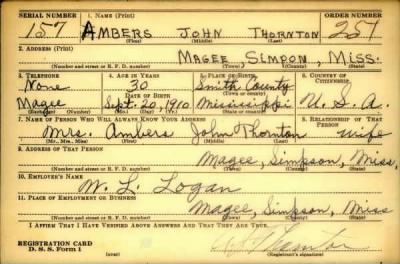 SERIAL NUMBER 1. NAME (Print) ORDER NUMBER
157 AMBERS JOHN THORNTON 257
(First) (Middle) (Last)
2. ADDRESS (Print)
MAGEE, SIMPON, MISS.
(Number and street or R. F. D. number) (Town) (County) (State)
3. TELEPHONE 4. AGE IN YEARS 5. PLACE OF BIRTH 6. COUNTRY OF CITIZENSHIP
None 30 Smith County
DATE OF BIRTH (Town or county)
Magee Sept. 20, 1910 Mississippi U. S. A.
(Exchange) (Number) (Mo.) (Day) (Yr.) (State or country)
7. NAME OF PERSON WHO WILL ALWAYS KNOW YOUR ADDRESS 8. RELATIONSHIP OF THAT PERSON
Mrs. Ambers John Thornton wife
(Mr., Mrs., Miss) (First) (Middle) (Last)
9. ADDRESS OF THAT PERSON
Magee, Simpson, Miss.
(Number and street or R. F. D. number) (Town) (County) (State)
10. EMPLOYER'S NAME
W. L. Logan
11. PLACE OF EMPLOYMENT OR BUSINESS
Magee, Simpson, Miss
(Number and street or R. F. D. number) (Town) (County) (State)
I AFFIRM THAT I HAVE VERIFIED ABOVE ANSWERS AND THAT THEY ARE TRUE.
REGISTRATION CARD
D. S. S. Form 1 (Registrant's signature)